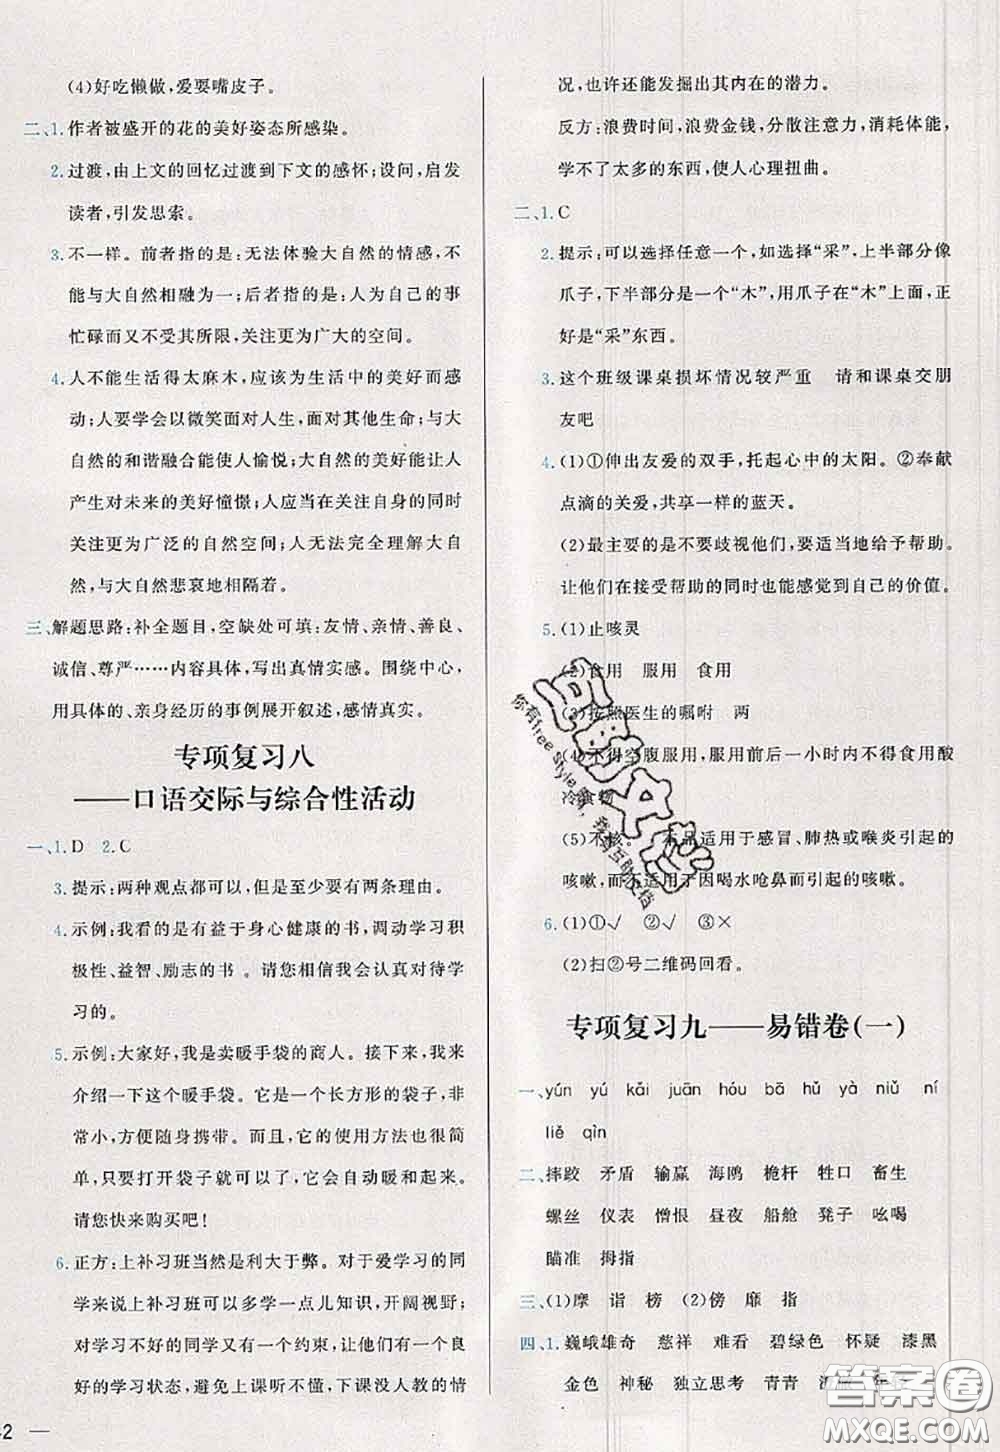 (4)好吃懒做,爱耍嘴皮子。
二、1.作者被盛开的花的美好姿态所感染。
2.过渡,由上文的回忆过渡到下文的感怀;设问,启发
读者,引发思索。
3.不一样。前者指的是:无法体验大自然的情感,不
能与大自然相融为一;后者指的是:人为自己的事
忙碌而又不受其所限,关注更为广大的空间。
4.人不能生活得太麻木,应该为生活中的美好而感
动;人要学会以微笑面对人生,面对其他生命;与大
自然的和谐融合能使人愉悦;大自然的美好能让人
产生对未来的美好憧憬;人应当在关注自身的同时
关注更为广泛的自然空间;人无法完全理解大自
然,与大自然悲哀地相隔着。
三、解题思路:补全题目,空缺处可填:友情、亲情、善良、
诚信、尊严……内容具体,写出真情实感。围绕中心,
用具体的、亲身经历的事例展开叙述,感情真实。
专项复习八
——口语交际与综合性活动
一、1.D 2.C
3.提示:两种观点都可以,但是至少要有两条理由。
4.示例:我看的是有益于身心健康的书,调动学习积
极性、益智、励志的书 。请您相信我会认真对待学
习的。
5.示例:大家好,我是卖暖手袋的商人。接下来,我来
介绍一下我的暖手袋。它是一个长方形的袋子,非
常小,方便随身携带。而且,它的使用方法也很简
单,只要打开袋子就可以了,它会自动暖和起来。
请您快来购买吧!
6.正方:上补习班当然是利大于弊。对于爱学习的同
学来说上补习班可以多学一点儿知识,开阔视野;
对学习不好的同学又有一个约束,让他们有个良
好的学习状态,避免上课听不懂,下课没人教的情
42 —
况,也许还能发掘出其内在的潜力。
反方:浪费时间,浪费金钱,分散注意力,消耗体能,
学不了太多的东西,使人心理扭曲。
二、1.C
2.提示:可以选择任意一个,如选择“采”,上半部分像
爪子,下半部分是一个“木”,用爪子在“木”上面,正
好是“采”东西。
3.这个班级课桌损坏情况较严重 请和课桌交朋
友吧
4.(1)①伸出友爱的双手,托起心中的太阳。②奉献
点滴的关爱,共享一样的蓝天。
(2)最主要的是不要歧视他们,要适当地给予帮助。
让他们在接受帮助的同时也能感觉到自己的价值。
5.(1)止咳灵
(2)食用 服用 食用
(3)按照医生的嘱咐 两
(4)不得空腹服用,服用前后一小时内不得食用酸
冷食物
(5)不 。 本品适用于感冒、肺热或喉炎引起的
咳嗽,而不适用于因喝水呛鼻而引起的咳嗽。
6.(1)①√ ②√ ③×
(2)扫②号二维码回看。
专项复习九——易错卷(一)
一、yún yú kǎi juān hóu bā hǔ yà niǔ ní
liě qìn
二、摔跤 矛盾 输赢 海鸥 桅杆 牲口 畜生
螺丝 仪表 憎恨 昼夜 船舱 凳子 吆喝
瞄准 拇指
三、(1)摩 诣 榜 (2)傍 靡 指
四、1.巍峨雄奇 慈祥 难看 碧绿色 怀疑 漆黑
金色 神秘 独立思考 青青
你有free style,我有互助文档
答案卷
MXQE.COM